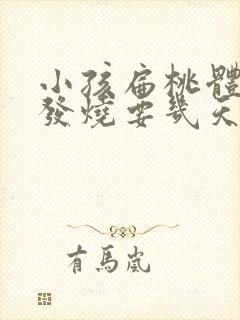 小孩扁桃體
發燒要幾天
有馬嵐